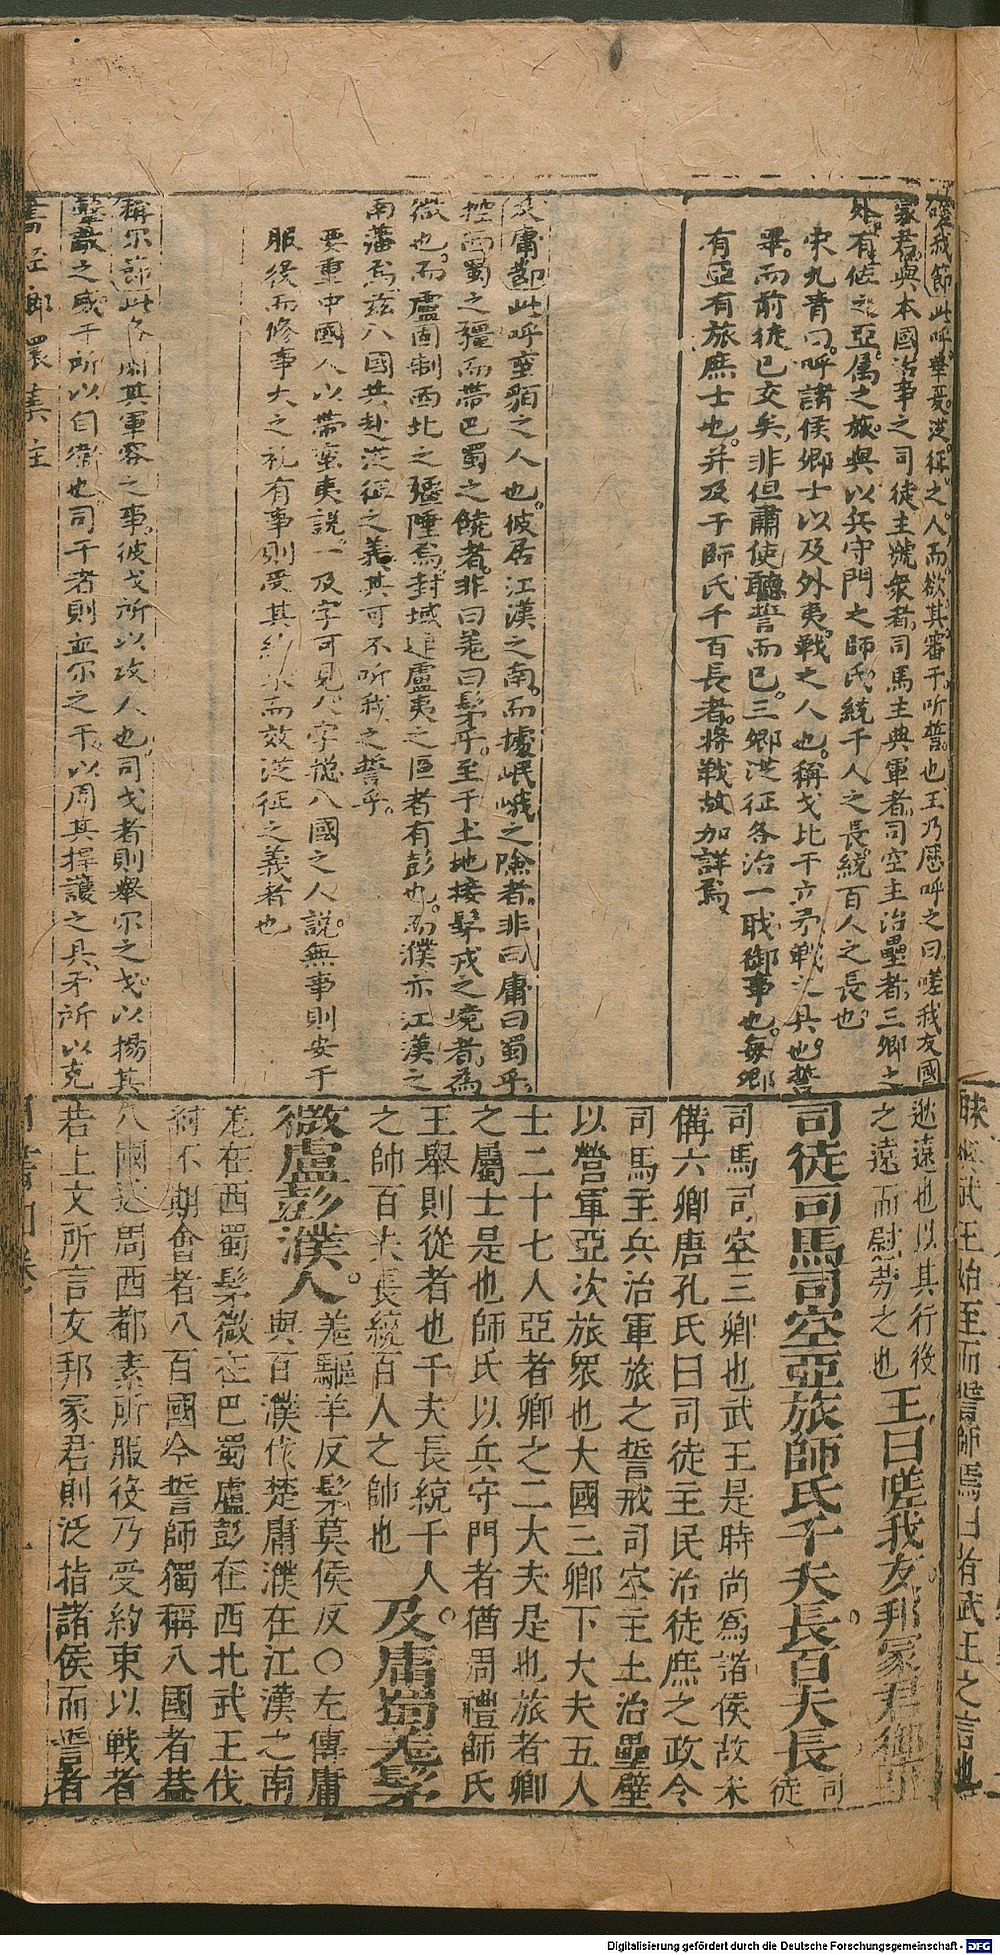 嗟我節此呼華夏從征之人而欲其審于听誓也王乃感呼之曰嗟我友國
冢君與本國治事之司徒主號衆者司馬主典軍者司空主治壘者三卿之
外有佐之亞屬之旅與以兵守門之師氏統千人之長統百人之長也
宋九青曰呼諸侯卿士以及外夷戰之人也稱戈比干立矛戰之具也誓
畢而前徒已交矣非但肅使聽誓而已三卿從征各治一職御事也每卿
有亞有旅庶士也并及于師氏千百長者將戰故加詳焉
及庸節此呼蠻貊之人也彼居江漢之南而據岷峨之險者非曰庸曰蜀乎
控西蜀之疆而帶巴蜀之饒者非曰羌曰髳乎至于土地接髳戎之境者為
微也而盧固制西北之疆陲焉封域連盧夷之區者有彭也而濮亦江漢之
南藩焉茲八國共赴從征之義其可不听我之誓乎
要重中國人以帶蠻夷說一及字可見八字總八國之人說無事則安于
服役而修事大之礼有事則受其約束而效從征之義者也
稱尔節此各閑其軍容之事彼戈所以攻人也司戈者則舉尔之戈以揚其
之威干所以自衛也司干者則並尔之干以周其捍護之具矛所以克
書經 環集註
逖遠也以其行役
之遠而慰勞之也
王曰嗟我友邦冢君御事
司徒司馬司空亞旅師氏千夫長百夫長
司徒
司馬司空三卿也武王是時尚爲諸侯故未
備六卿唐孔氏曰司徒主民治徒庶之政令
司馬主兵治軍旅之誓戒司空主土治壘壁
以營軍亞次旅衆也大國三卿下大夫五人
士二十七人亞者卿之二大夫是也旅者卿
之屬士是也師氏以兵守門者猶周禮師氏
王舉則從者也千夫長統千人
之帥百夫長統百人之帥也
及庸蜀羌髳
微盧彭濮人
羌驅羊反髳莫侯反○左傳庸
與百濮伐楚庸濮在江漢之南
羌在西蜀髳微在巴蜀盧彭在西北武王伐
紂不期會者八百國今誓師獨稱八國者蓋
八國近周西都素所服役乃受約束以戰者
若上文所言友邦冢君則泛指諸侯而誓者
武王始至而誓師焉曰者武王之言也
Digitalisierung gefördert durch die Deutsche Forschungsgemeinschaft - DFG